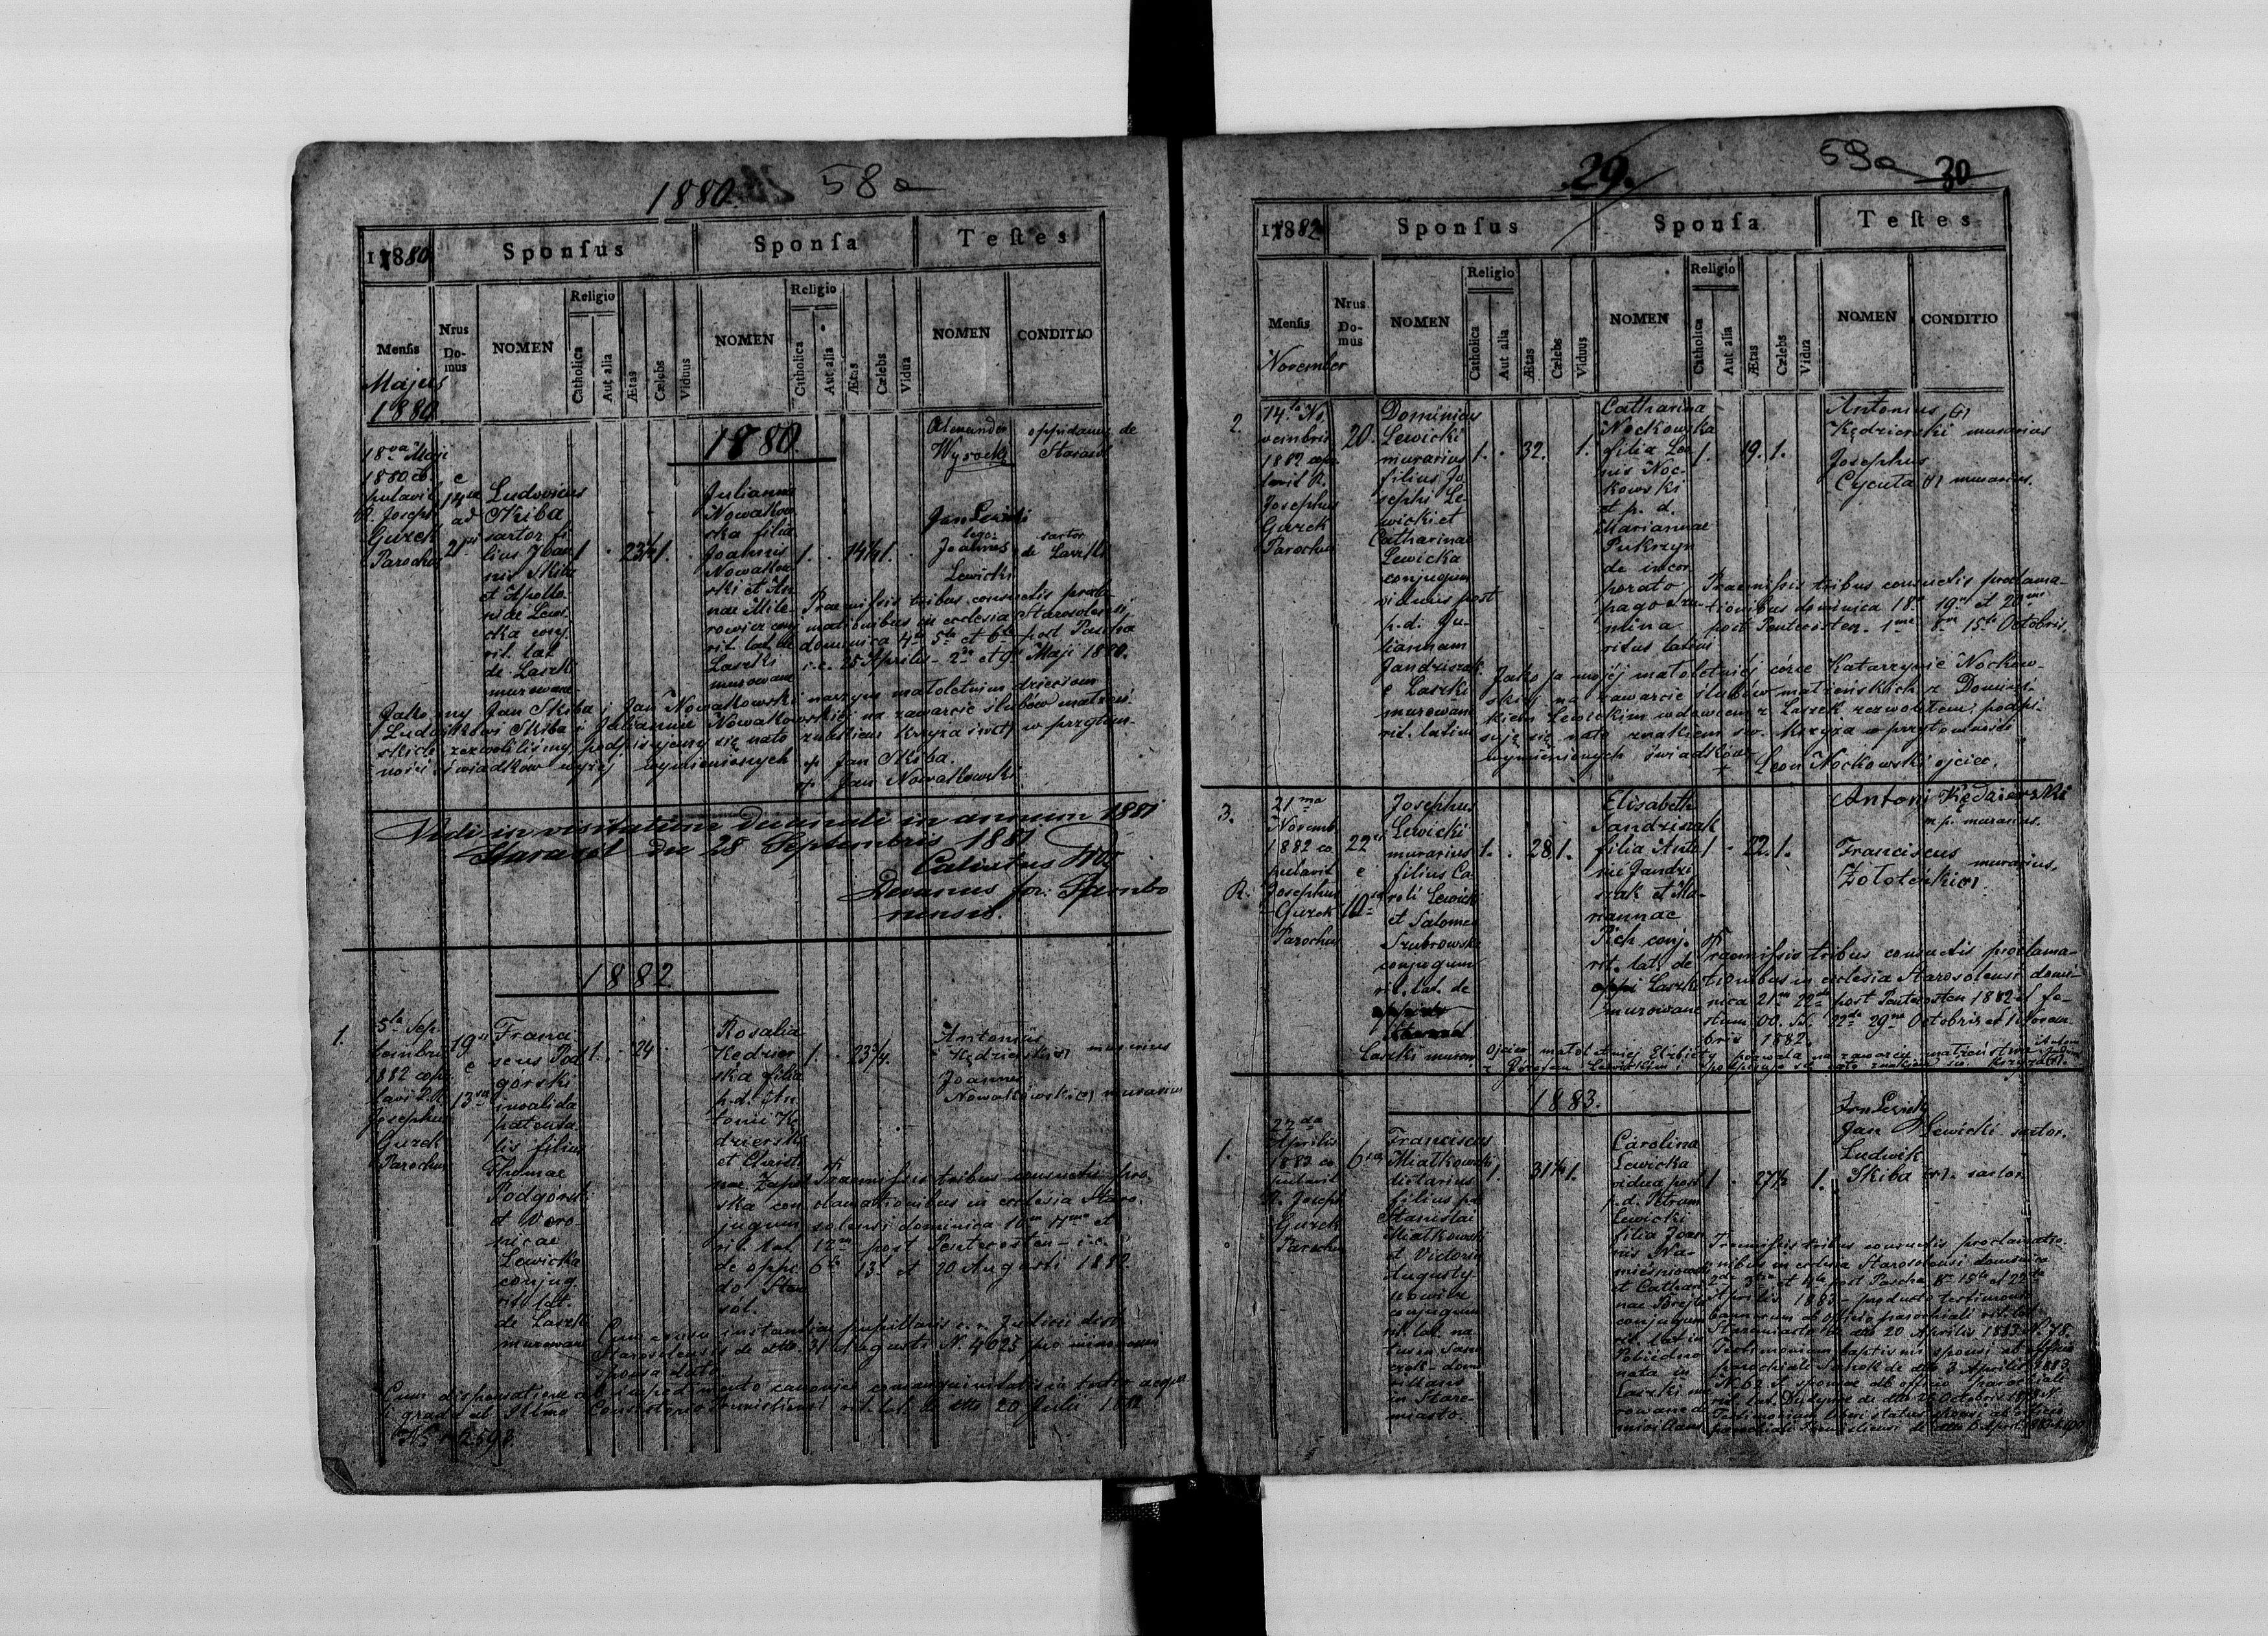 1880
58a
1880
Sponſus
Sponſa
Teſtes
Menſis
Nrus Domus
NOMEN
Religio
Catholica
Aut alia
Ætas
Cælebs
Viduus
NOMEN
Religio
Catholica
Aut alia
Ætas
Cælebs
Vidua
NOMEN
CONDITIO
Majus
1880
1880.
18va Maji
1880 co
pulavit
R. Joseph
Gurek
Parochus
e
14a
ad
21
Ludovicus
Skiba
sartor fi
lius Joan
nis Skiba
et Apollo
niae Lewi
cka conj.
rit. lat.
de Laszki
murowane
1.
23½
1.
Julianna
Nowakow
ska filia
Joannis
Nowakow
ski et An
nae Mile
rowicz conj
rit. lat. de
Laszki
murowane
1.
1.
Alexander
Wysocki
oppidanus de
Starasol
Jan Lewicki
Joannes
Lewicki
sartor
de Laszki
Praemissis tribus consuetis procla-
mationibus in ecclesia Starosolensi
dominica 4ta 5ta et 6ta post Pascha
i.e. 25 Aprilis - 2da et 9 Maji 1880.
Jako my Jan Skiba i Jan Nowakowski naszym małoletnim dzieciom
Ludwikowi Skiba i Juliannie Nowakowskiej na zawarcie ślubów małżeń-
skich zezwoliliśmy podpisujemy się na to znakiem krzyża święt. w przytom-
ności świadków wyżej wymienionych + Jan Skiba.
+ Jan Nowakowski
Vidi in visitatione decanali in annum 1881
Starasol die 28 Septembris 1881
Calixtus
Decanus for. Sambo
riensis.
1882.
1.
5ta Sep-
tembris
1882 copu
lavit R.
Josephus
Gurek
Parochus
19a
e
13a
Franci
scus Pod
górski
invalida
patenta
lis filius
Thomae
Podgorski
et Vero-
nicae
Lewicka
conjug.
rit. lat.
de Laszki
murowane
1.
24
Rosalia
Kędzier
ska filia
p.d. An
tonii Kę
dzierski
et Christi
nae Zapał
ska con
jugum
rit. lat.
de oppi
do Stara
sol.
1.
23¾
Antonius
Kędzierski
murarius
Joannes
Nowakowski
murarius
Praemissis tribus consuetis pro-
clamationibus in ecclesia Staro-
solensi dominica 10ma 11ma et
12ma post Pentecosten - i.e.
6ta 13a et 20 Augusti 1882
Starosolensis de dtto 31 Augusti N. 4025 pro minorenni
sponsa data
Cum dispensatione ab impedimento canonico consanguinitatis in tertio aequa
li gradu ab Illmo Consistorio Premisliensi rit. lat. de dtto 20 Julii 1882
N. 2593
29.
59a
30
1882
Sponſus
Sponſa
Teſtes
Menſis
Nrus Domus
NOMEN
Religio
Catholica
Aut alia
Ætas
Cælebs
Viduus
NOMEN
Religio
Catholica
Aut alia
Ætas
Cælebs
Vidua
NOMEN
CONDITIO
November
2.
14ta No
vembris
1882 copu
lavit R.
Josephus
Gurek
Parochus
20.
Dominicus
Lewicki
murarius
filius Jo
sephi Le
wicki et
Catharinae
Lewicka
conjugum
viduus post
p.d. Ju-
liannam
Jandziszak
e Laszki
murowane
rit. latini
1.
32.
1.
Catharina
Nockowska
filia Leo
nis Noc-
kowski
et p. d.
Mariannae
Pukrzyn
de incor
porato
pago
ritus latini
1.
19.
1.
Antonius
Kędzierski
murarius
Josephus
Cycuta
murarius.
Praemissis tribus consuetis proclama-
tionibus dominica 18a 19a et 20ma
post Pentecosten - 1ma 8va 15ta Octobris.
Jako ja mojej małoletniej córce Katarzynie Nockow-
skiej na zawarcie ślubów małżeńskich z Domini-
kiem Lewickim wdowcem z Laszek zezwoliłem, podpi-
suję się na to znakiem św. krzyża w przytomności
wymienionych świadków
+ Leon Nockowski ojciec.
3.
21ma
Novemb.
1882 co
pulavit
R. Josephus
Gurek
Parochus
22
e
10
Josephus
Lewicki
murarius
filius Ca
roli Lewicki
et Salomea
Szubrowska
conjugum
rit. lat. de
Laszki murow.
1.
28
1.
Elisabeth
Jandziszak
filia Anto
nii Jandzi
szak et Ma-
riannae
Pich conj.
rit. lat. de
Laszki
murowane
1
22.
1.
Antoni Kędzierski
m.p. murarius.
Franciscus
Zołoteńki
murarius.
Praemissis tribus consuetis proclama-
tionibus in ecclesia Starosolensi domi-
nica 21ma 22da post Pentecosten 1882 et fe-
stum OO. SS. 22da 29na Octobris et 1 Novem-
bris 1882.
Ojciec małoletniej Elżbiety pozwala na zawarcie małżeństwa
z Józefem Lewickim i podpisuje się na to znakiem św. krzyża
1883.
1.
22da
Aprilis
1883 co
pulavit
R. Joseph
Gurek
Parochus
6
Franciscus
Miatkowski
dietarius
filius p.d.
Stanislai
Miatkowski
et Victoria
Augusty-
nowicz
conjugum
rit. lat. na
tus in San
czok - domi
cilians
in Stare-
miasto.
1.
31½
1.
Carolina
Lewicka
vidua post
p.d. Petrum
Lewicki
filia Joan
nis Na-
mieśniowski
et Cathari
nae Brejta
conjugum
rit. lat. in
nata in
Laszki mu
rowane do
miciliane
1
27½
1.
Jan Lewicki
Jan Lewicki sartor.
Ludwik
Skiba
sartor
Praemissis tribus consuetis proclamatio-
nibus in ecclesia Starosolensi dominica
2da 3tia et 4ta post Pascha 8va 15ta et 22da
Aprilis 1883 - producto testimonio
bannorum ab officio parochiali rit. lat.
Staremiasto de dtto 20 Aprilis 1883 N. 78.
Testimonium baptismi sponsi ab officio
parochiali Sanok de dtto 3 Aprilis 1883
N. 62 et sponsae ab officio parochiali
Testimonium liberi status sponsi ab officio
parochiali